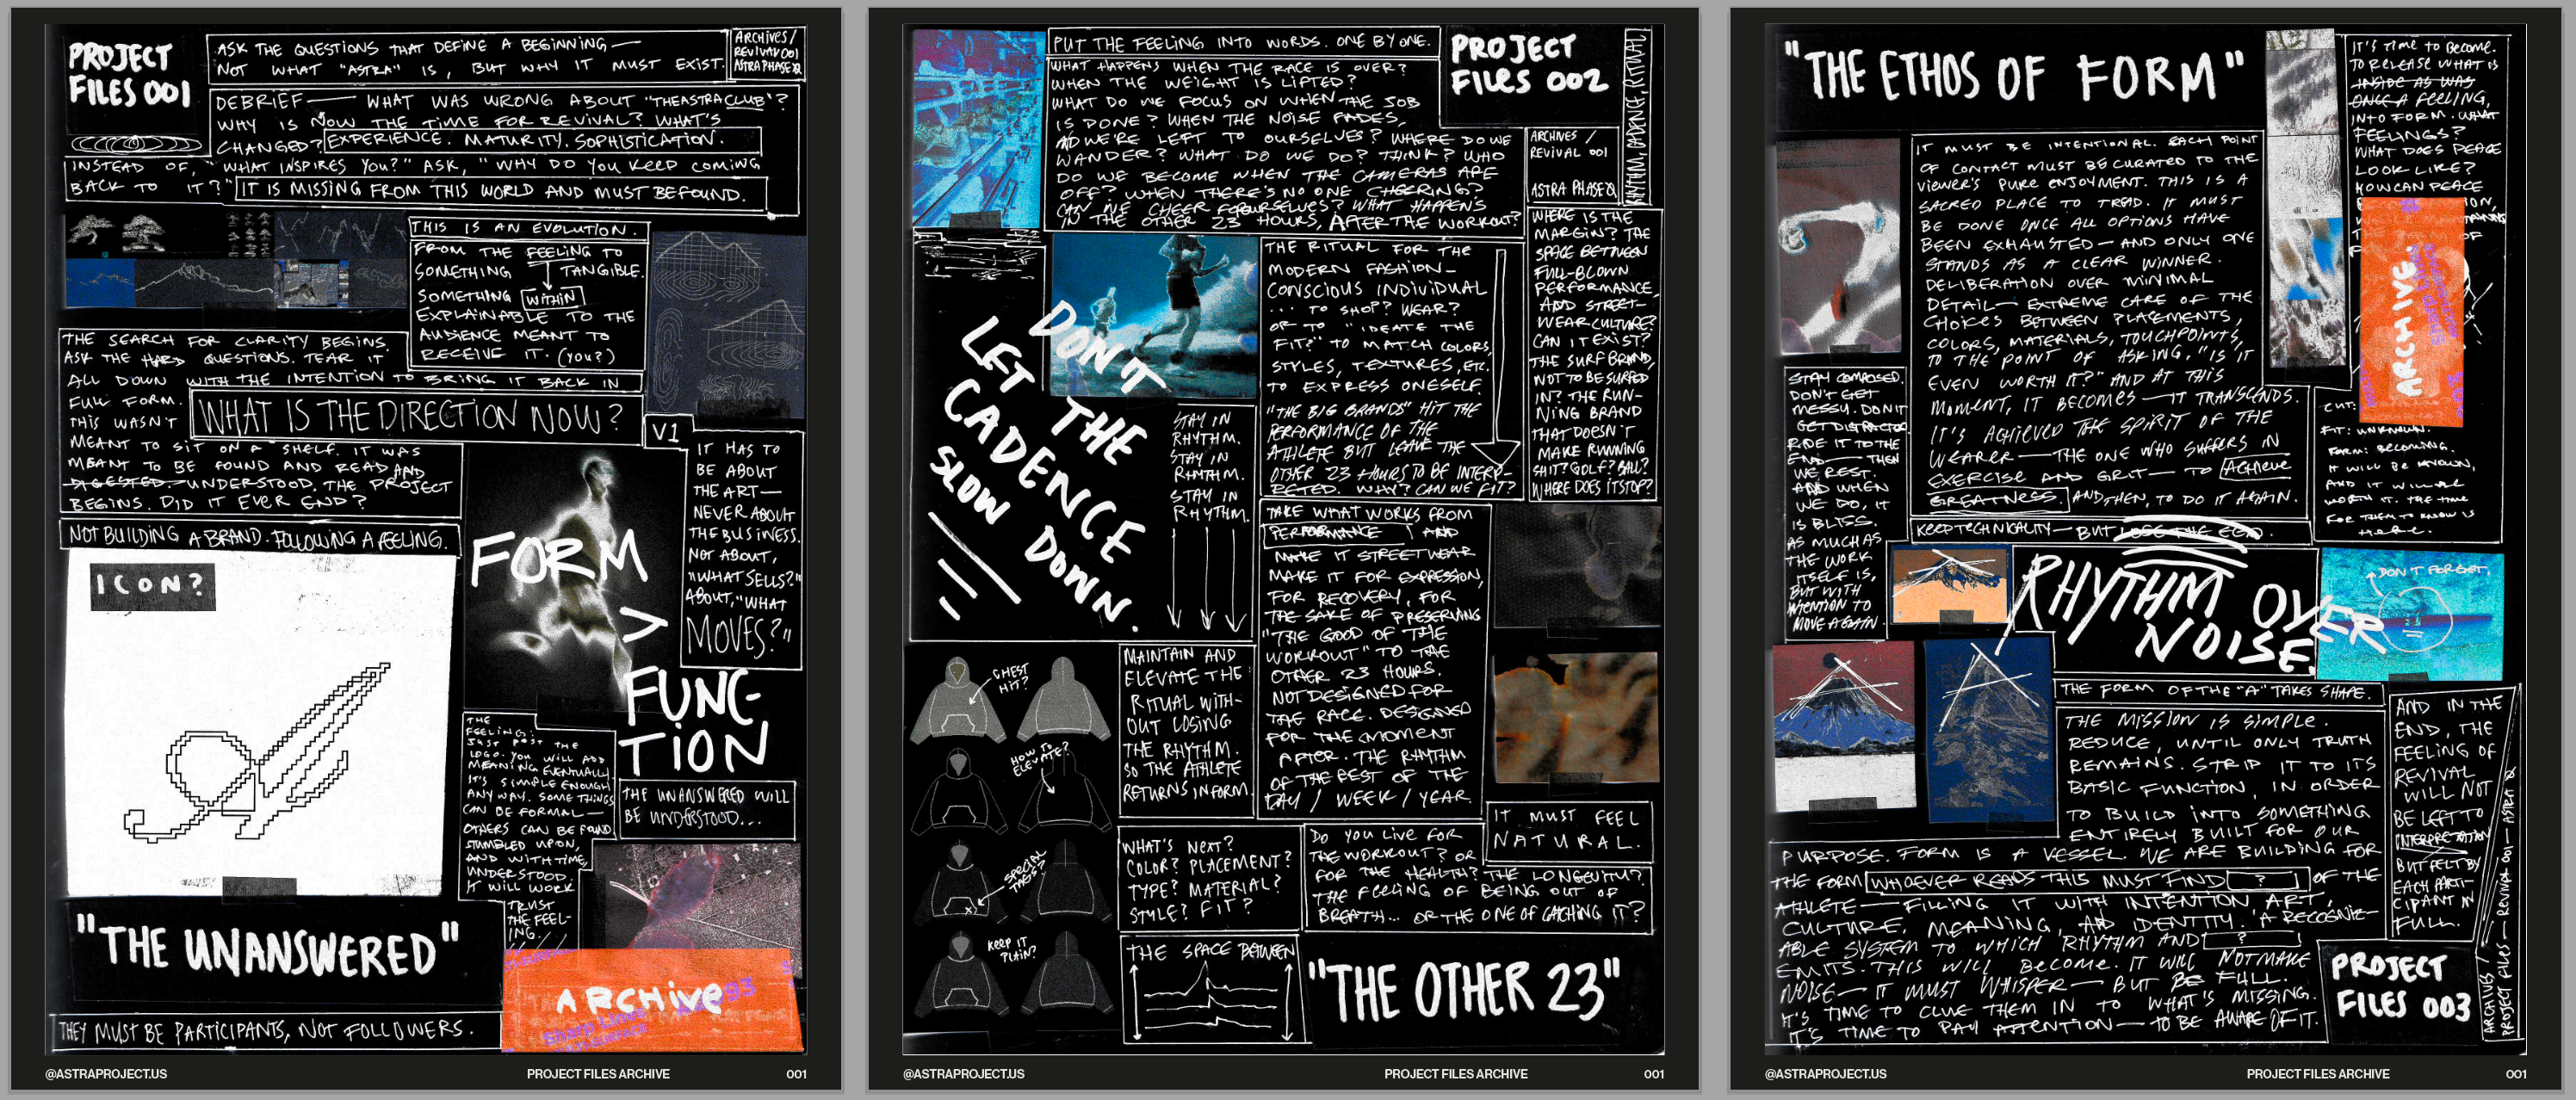 PROJECT
FILES 001
ASK THE QUESTIONS THAT DEFINE A BEGINNING —
NOT WHAT "ASTRA" IS, BUT WHY IT MUST EXIST.
ARCHIVES /
REVIVAL 001
ASTRA PHASE
DEBRIEF — WHAT WAS WRONG ABOUT "THEASTRACLUB"?
WHY IS NOW THE TIME FOR REVIVAL? WHAT'S
CHANGED? EXPERIENCE. MATURITY. SOPHISTICATION.
INSTEAD OF, "WHAT INSPIRES YOU?" ASK, "WHY DO YOU KEEP COMING
BACK TO IT?" IT IS MISSING FROM THIS WORLD AND MUST BE FOUND.
THIS IS AN EVOLUTION.
FROM THE FEELING TO
SOMETHING TANGIBLE.
SOMETHING WITHIN
EXPLAINABLE TO THE
AUDIENCE MEANT TO
RECEIVE IT. (YOU?)
THE SEARCH FOR CLARITY BEGINS.
ASK THE HARD QUESTIONS. TEAR IT
ALL DOWN WITH THE INTENTION TO BRING IT BACK IN
FULL FORM.
THIS WASN'T
MEANT TO SIT ON A SHELF. IT WAS
MEANT TO BE FOUND AND READ AND
DIGESTED. UNDERSTOOD. THE PROJECT
BEGINS. DID IT EVER END?
WHAT IS THE DIRECTION NOW?
V1
IT HAS TO
BE ABOUT
THE ART —
NEVER ABOUT
THE BUSINESS.
NOT ABOUT,
"WHAT SELLS?"
ABOUT, "WHAT
MOVES?"
NOT BUILDING A BRAND. FOLLOWING A FEELING.
ICON?
FORM
>
FUNC-
TION
THE
FEELING:
JUST POST THE
LOGO. YOU WILL ADD
MEANING EVENTUALLY.
IT'S SIMPLE ENOUGH
ANYWAY. SOME THINGS
CAN BE FORMAL —
OTHERS CAN BE FOUND,
STUMBLED UPON,
AND WITH TIME,
UNDERSTOOD.
IT WILL WORK
TRUST
THE FEEL-
ING.
THE UNANSWERED WILL
BE UNDERSTOOD...
"THE UNANSWERED"
ARCHIVE
Sharp Lines
THEY MUST BE PARTICIPANTS, NOT FOLLOWERS.
@ASTRAPROJECT.US
PROJECT FILES ARCHIVE
001
PUT THE FEELING INTO WORDS. ONE BY ONE.
PROJECT
FILES 002
RHYTHM, CADENCE, RITUAL
WHAT HAPPENS WHEN THE RACE IS OVER?
WHEN THE WEIGHT IS LIFTED?
WHAT DO WE FOCUS ON WHEN THE JOB
IS DONE? WHEN THE NOISE FADES,
AND WE'RE LEFT TO OURSELVES? WHERE DO WE
WANDER? WHAT DO WE DO? THINK? WHO
DO WE BECOME WHEN THE CAMERAS ARE
OFF? WHEN THERE'S NO ONE CHEERING?
CAN WE CHEER FOR OURSELVES? WHAT HAPPENS
IN THE OTHER 23 HOURS, AFTER THE WORKOUT?
ARCHIVES /
REVIVAL 001
ASTRA PHASE
WHERE IS THE
MARGIN? THE
SPACE BETWEEN
FULL-BLOWN
PERFORMANCE,
AND STREET-
WEAR CULTURE?
CAN IT EXIST?
THE SURF BRAND,
NOT TO BE SURFED
IN? THE RUN-
NING BRAND
THAT DOESN'T
MAKE RUNNING
SHIT? GOLF? BALL?
WHERE DOES IT STOP?
THE RITUAL FOR THE
MODERN FASHION-
CONSCIOUS INDIVIDUAL
... TO SHOP? WEAR?
OR TO "IDEATE THE
FIT?" TO MATCH COLORS,
STYLES, TEXTURES, ETC.
TO EXPRESS ONESELF.
"THE BIG BRANDS" HIT THE
PERFORMANCE OF THE
ATHLETE BUT LEAVE THE
OTHER 23 HOURS TO BE INTERP-
RETED. WHY? CAN WE FIT?
DON'T
LET THE
CADENCE
SLOW DOWN.
STAY IN
RHYTHM.
STAY IN
RHYTHM.
STAY IN
RHYTHM.
TAKE WHAT WORKS FROM
PERFORMANCE AND
MAKE IT STREETWEAR
MAKE IT FOR EXPRESSION,
FOR RECOVERY, FOR
THE SAKE OF PRESERVING
"THE GOOD OF THE
WORKOUT" TO THE
OTHER 23 HOURS.
NOT DESIGNED FOR
THE RACE. DESIGNED
FOR THE MOMENT
AFTER. THE RHYTHM
OF THE BEST OF THE
DAY / WEEK / YEAR.
CHEST
HIT?
HOW TO
ELEVATE?
SPECIAL
TAGS?
KEEP IT
PLAIN?
MAINTAIN AND
ELEVATE THE
RITUAL WITH-
OUT LOSING
THE RHYTHM.
SO THE ATHLETE
RETURNS IN FORM.
IT MUST FEEL
NATURAL.
WHAT'S NEXT?
COLOR? PLACEMENT?
TYPE? MATERIAL?
STYLE? FIT?
DO YOU LIVE FOR
THE WORKOUT? OR
FOR THE HEALTH? THE LONGEVITY?
THE FEELING OF BEING OUT OF
BREATH... OR THE ONE OF CATCHING IT?
THE SPACE BETWEEN
"THE OTHER 23"
@ASTRAPROJECT.US
PROJECT FILES ARCHIVE
001
"THE ETHOS OF FORM"
IT'S TIME TO BECOME.
TO RELEASE WHAT IS
INSIDE AS WAS
ONCE A FEELING,
INTO FORM. WHAT
FEELINGS?
WHAT DOES PEACE
LOOK LIKE?
HOW CAN PEACE
ARCHIVE.
IT MUST BE INTENTIONAL. EACH POINT
OF CONTACT MUST BE CURATED TO THE
VIEWER'S PURE ENJOYMENT. THIS IS A
SACRED PLACE TO TREAD. IT MUST
BE DONE ONCE ALL OPTIONS HAVE
BEEN EXHAUSTED — AND ONLY ONE
STANDS AS A CLEAR WINNER.
DELIBERATION OVER MINIMAL
DETAIL — EXTREME CARE OF THE
CHOICES BETWEEN PLACEMENTS,
COLORS, MATERIALS, TOUCHPOINTS,
TO THE POINT OF ASKING, "IS IT
EVEN WORTH IT?" AND AT THIS
MOMENT, IT BECOMES — IT TRANSCENDS.
IT'S ACHIEVED THE SPIRIT OF THE
WEARER — THE ONE WHO SUFFERS IN
EXERCISE AND GRIT — TO ACHIEVE
GREATNESS. AND THEN, TO DO IT AGAIN.
STAY COMPOSED.
DON'T GET
MESSY. DON'T
GET DISTRACTED
RIDE IT TO THE
END — THEN
WE REST.
AND WHEN
WE DO, IT
IS BLISS.
AS MUCH AS
THE WORK
ITSELF IS,
BUT WITH
INTENTION TO
MOVE AGAIN.
CUT:
FIT: UNKNOWN.
FORM: BECOMING.
IT WILL BE KNOWN,
AND IT WILL BE
WORTH IT. THE TIME
FOR THEM TO KNOW IS
HERE.
KEEP TECHNICALITY — BUT LOSE THE EGO.
RHYTHM OVER
NOISE.
DON'T FORGET.
THE FORM OF THE "A" TAKES SHAPE.
THE MISSION IS SIMPLE.
REDUCE, UNTIL ONLY TRUTH
REMAINS. STRIP IT TO ITS
BASIC FUNCTION, IN ORDER
TO BUILD INTO SOMETHING
ENTIRELY BUILT FOR OUR
PURPOSE. FORM IS A VESSEL. WE ARE BUILDING FOR
THE FORM WHOEVER READS THIS MUST FIND ? OF THE
ATHLETE — FILLING IT WITH INTENTION, ART,
CULTURE, MEANING, AND IDENTITY. A RECOGNIZ-
ABLE SYSTEM TO WHICH RHYTHM AND ?
EMITS. THIS WILL BECOME. IT WILL NOT MAKE
NOISE — IT MUST WHISPER — BUT BE FULL.
IT'S TIME TO CLUE THEM IN TO WHAT'S MISSING.
IT'S TIME TO PAY ATTENTION — TO BE AWARE OF IT.
AND IN THE
END, THE
FEELING OF
REVIVAL
WILL NOT
BE LEFT TO
INTERPRETATION
BUT FELT BY
EACH PARTI-
CIPANT IN
FULL.
PROJECT
FILES 003
ARCHIVES /
PROJECT FILES — REVIVAL 001 — ASTRA
@ASTRAPROJECT.US
PROJECT FILES ARCHIVE
001